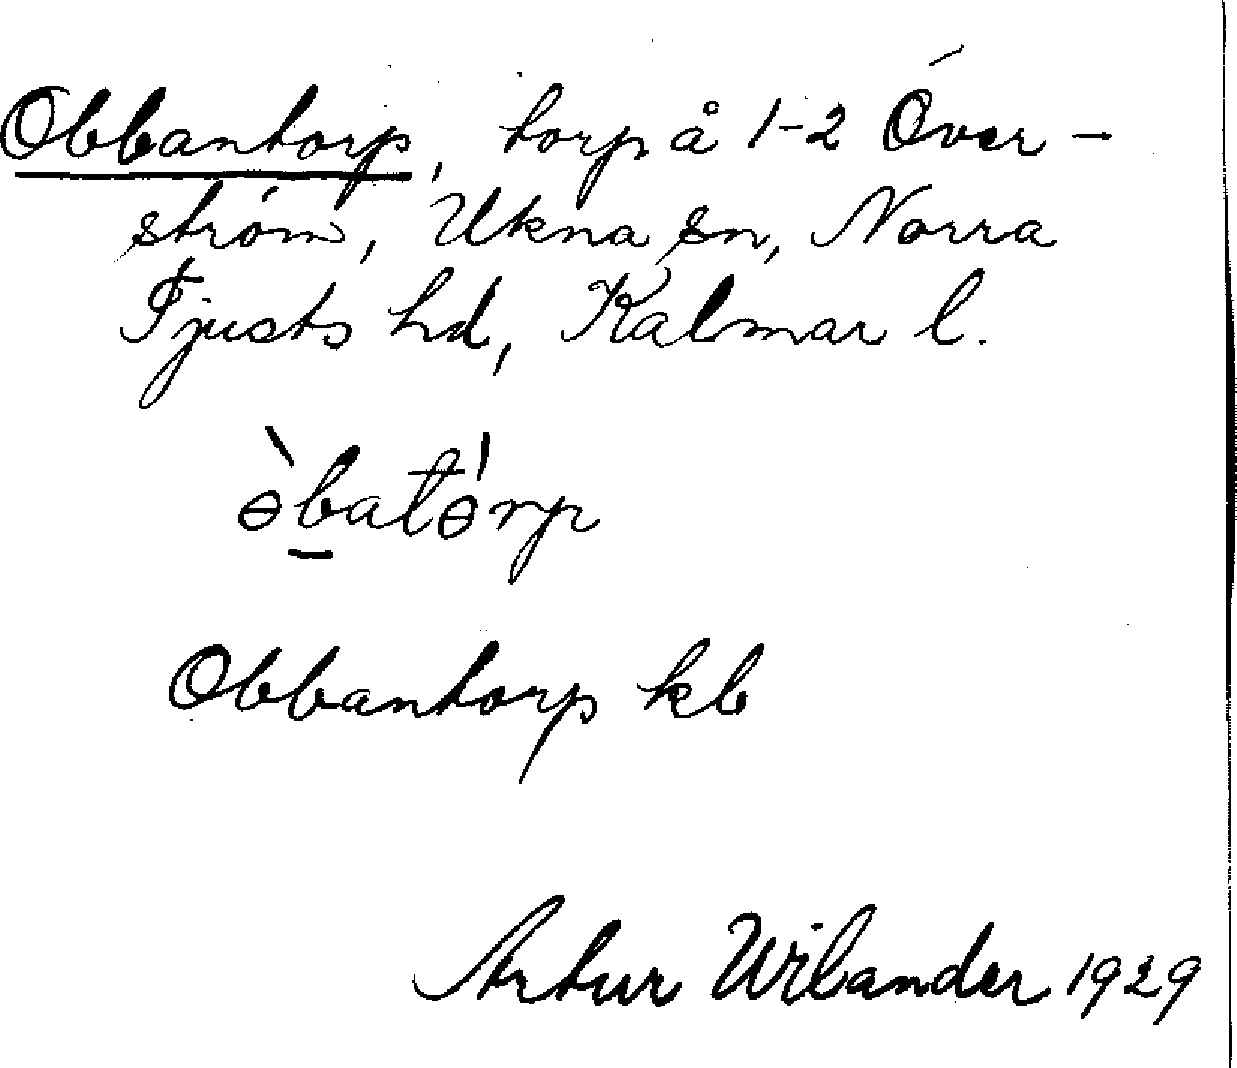 Obbantorp, torp å 1-2 Över-
ström, Ukna sn, Norra
Tjusts hd, Kalmar l.
ɵ̀batɵ́rp
Obbantorp kb
Artur Wilander 1929